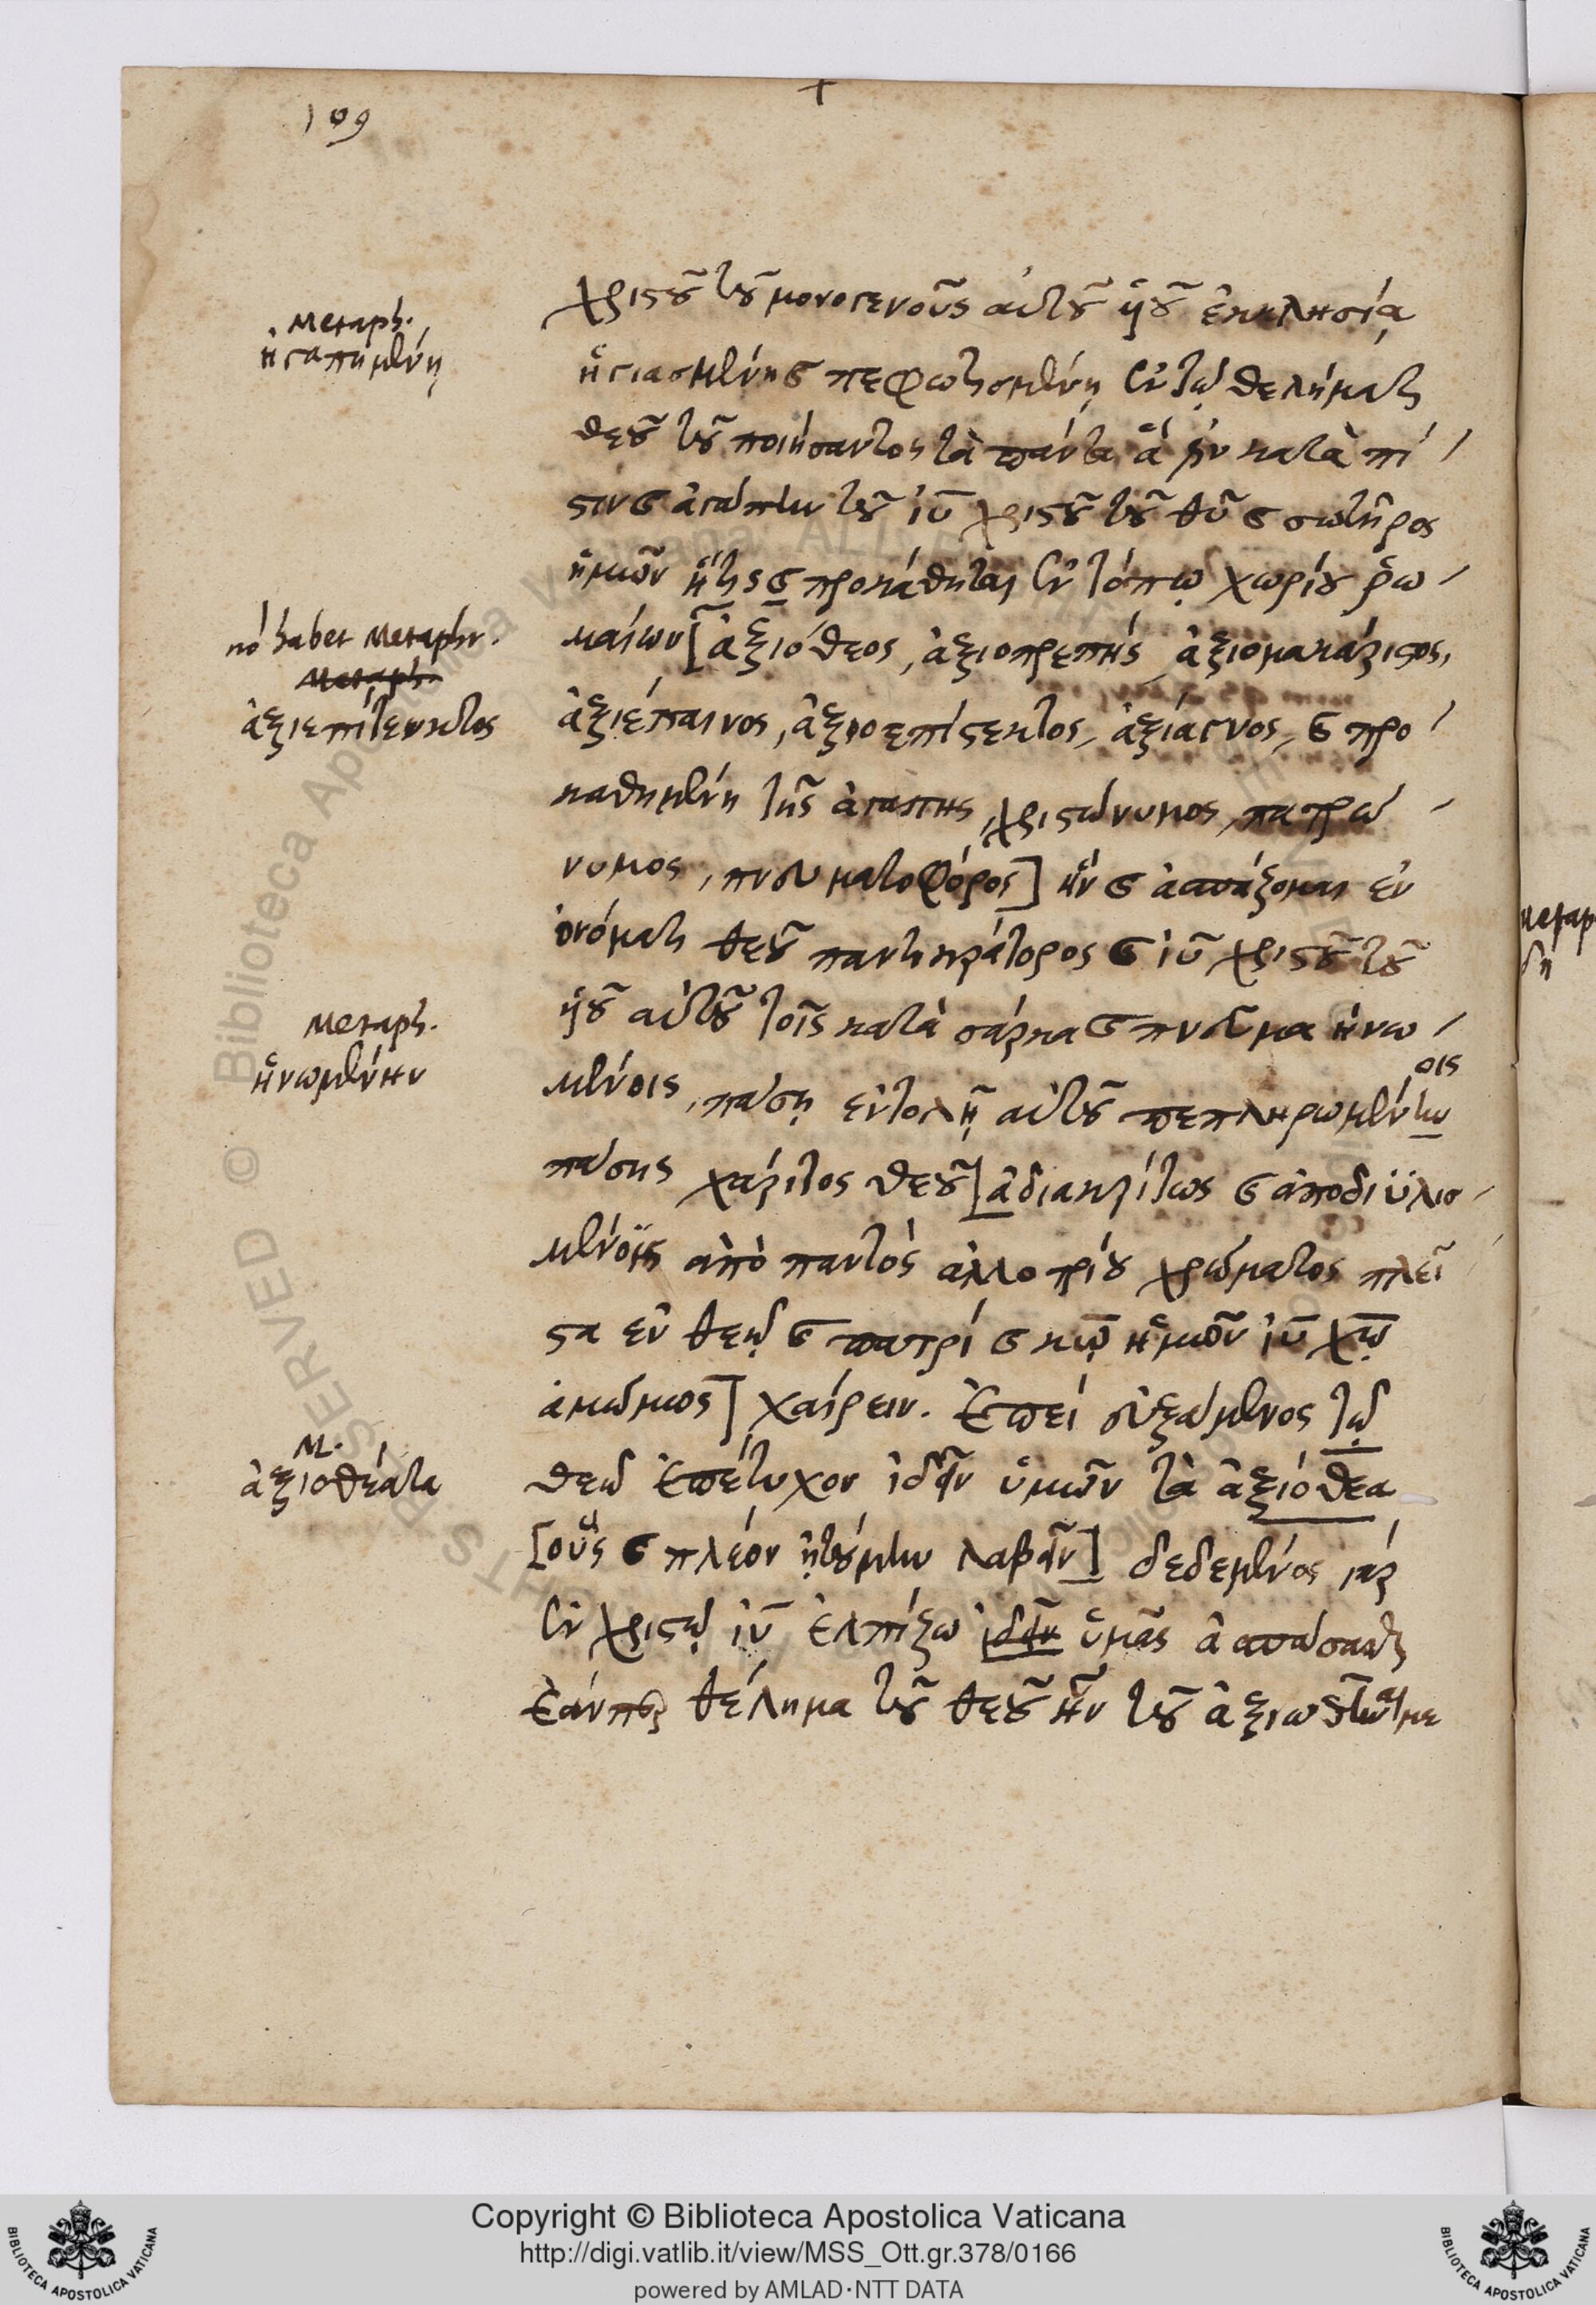 109
χριστοῦ τοῦ μονογενοῦς αὐτοῦ υἱοῦ ἐκκλησίᾳ
Metaph.
ἠγαπημένῃ
ἡγιασμένη καὶ πεφωτισμένῃ ἐν τῷ θελήματι
θεοῦ τοῦ ποιήσαντος τὰ πάντα ἅ ἐστιν κατὰ πί
στιν καὶ ἀγάπην τοῦ ἰῦ χριστοῦ τοῦ θῦ καὶ σωτῆρος
ἡμῶν ἥτις καὶ προκάθηται ἐν τόπῳ χωρίου ῥω
nō habet Metaphr.
μαίων [ἀξιόθεος, ἀξιοπρεπής, ἀξιομακάριστος,
Metaph.
ἀξιεπίτευκτος
ἀξιέπαινος, ἀξιοεπίτεκτος, ἀξίαγνος, καὶ προ
καθημένη τῆς ἀγαπης, χριστώνυμος, πατρώ
νυμος, πνευματοφόρος] ἣν καὶ ἀσπάζομαι ἐν
ὀνόματι θεοῦ παντικράτορος καὶ ἰῦ χριστοῦ τοῦ
υἱοῦ αὐτοῦ τοῖς κατὰ σάρκα καὶ πνεῦμα ἡνω
Metaph.
ἡνωμένην
οις
μένοις, πάσῃ ἐντολῇ αὐτοῦ πεπληρωμένην
πάσης χάριτος θεοῦ [ἀδιακρίτως καὶ ἀποδιϋλισ
μένοις ἀπὸ παντὸς ἀλλοτρίου χρώματος πλεῖ
στα ἐν θεῷ καὶ πατρί καὶ κῳ ἡμῶν ἰῦ χῳ
ἀμώμως] χαίρειν. Ἐπεί εὐξάμενος τῷ
M.
ἀξιοθέατα
θεῷ ἐπέτυχον ἰδεῖν ὑμῶν τὰ ἀξιόθεα
[οὓς καὶ πλέον ᾐτούμην λαβεῖν] δεδεμένος γὰρ
ἐν χριστῷ ἰῦ ἐλπίζω ἰδεῖν ὑμᾶς ἀσπάσασθαι
ἐάνπερ θέλημα τοῦ θεοῦ ἦν τοῦ ἀξιωθῆναί με
Copyright © Biblioteca Apostolica Vaticana
http://digi.vatlib.it/view/MSS_Ott.gr.378/0166
powered by AMLAD·NTT DATA